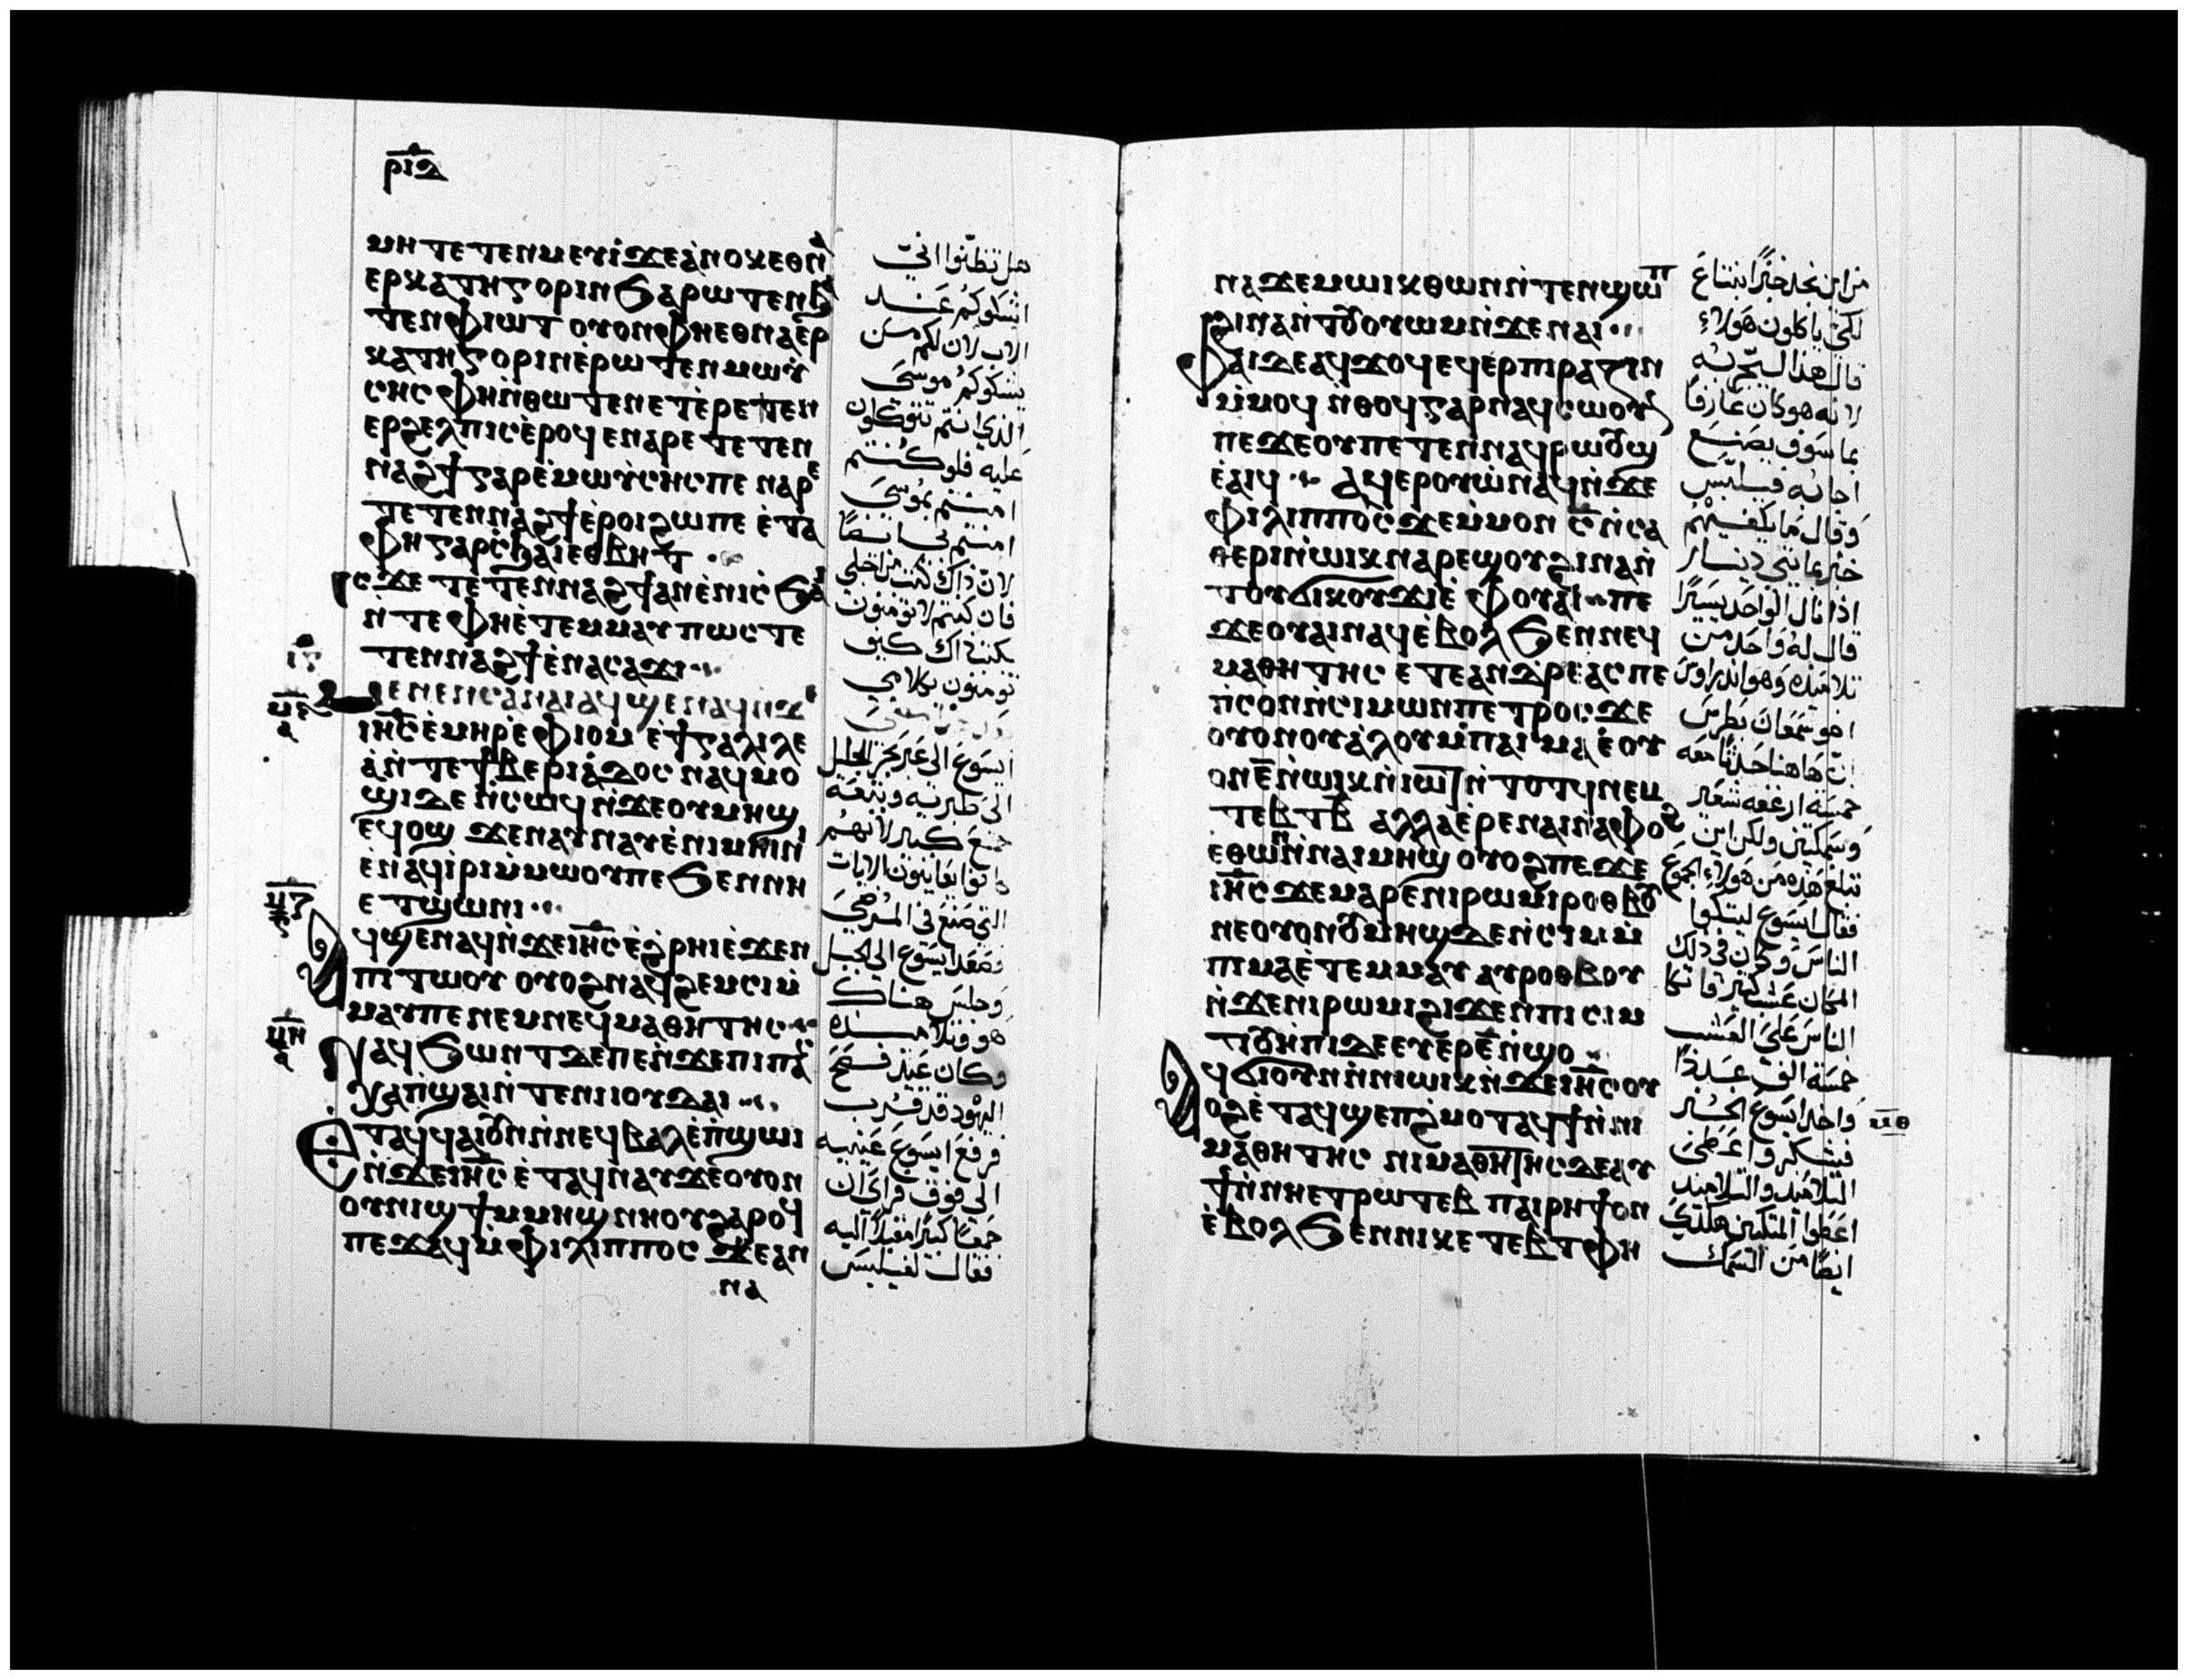 ⲣⲓⲇ
ⲙⲏ ⲧⲉⲧⲉⲛⲙⲉⲩⲓ ϫⲉ ⲁⲛⲟⲕ ⲉⲑⲛⲁ
ⲉⲣⲕⲁⲧⲏⲅⲟⲣⲓⲛ ϧⲁⲣⲱⲧⲉⲛ ϧⲁ
ⲧⲉⲛ ⲫⲓⲱⲧ ⲟⲩⲟⲛ ⲫⲏⲉⲑⲛⲁⲉⲣ
ⲕⲁⲧⲏⲅⲟⲣⲓⲛ ⲉⲣⲱⲧⲉⲛ ⲙⲱⲩ
ⲥⲏⲥ ⲫⲏ ⲛⲑⲱⲧⲉⲛ ⲉⲧⲉⲣⲉⲧⲉⲛ
ⲉⲣϩⲉⲗⲡⲓⲥ ⲉⲣⲟϥ ⲉⲛⲁⲣⲉⲧⲉⲧⲉⲛ
ⲛⲁϩϯ ⲅⲁⲣ ⲉⲙⲱⲩⲥⲏⲥ ⲡⲉ ⲛⲁⲣⲉ
ⲧⲉⲧⲉⲛⲛⲁϩϯ ⲉⲣⲟⲓ ϩⲱ ⲡⲉ ⲉⲧⲁ
ⲫⲏ ⲅⲁⲣ ⲥϧⲁⲓ ⲉⲑⲃⲏⲧ
ⲓⲥϫⲉ ⲧⲉⲧⲉⲛⲛⲁϩϯ ⲁⲛ ⲉⲛⲓⲥϧⲁⲓ
ⲛⲧⲉ ⲫⲏ ⲉⲧⲉⲙⲙⲁⲩ ⲡⲱⲥ ⲧⲉ
ⲧⲉⲛⲛⲁϩϯ ⲉⲛⲁⲥⲁϫⲓ
ⲙⲉⲛⲉⲛⲥⲁ ⲛⲁⲓ ⲁϥϣⲉ ⲛⲁϥ ⲛϫⲉ
ⲓⲏⲥ ⲉⲙⲏⲣ ⲉⲫⲓⲟⲙ ⲉϯⲅⲁⲗⲓⲗⲉ
ⲁ ⲛⲧⲉ ϯⲃⲉⲣⲓⲁⲇⲟⲥ ⲛⲁϥⲙⲟ
ϣⲓ ⲇⲉ ⲛⲥⲱϥ ⲛϫⲉ ⲟⲩⲙⲏϣ
ⲉϥⲟϣ ϫⲉ ⲛⲁⲩⲛⲁⲩ ⲉⲛⲓⲙⲏⲓⲛⲓ
ⲉⲛⲁϥⲓⲣⲓ ⲙⲙⲱⲟⲩ ⲡⲉ ϧⲉⲛ ⲛⲏ
ⲉⲧϣⲱⲛⲓ
ⲁϥϣⲉ ⲛⲁϥ ⲛϫⲉ ⲓⲏⲥ ⲉϩⲣⲏⲓ ⲉϫⲉⲛ
ⲡⲓⲧⲱⲟⲩ ⲟⲩⲟϩ ⲛⲁϥϩⲉⲙⲥⲓ ⲙ
ⲙⲁⲩ ⲡⲉ ⲛⲉⲙ ⲛⲉϥⲙⲁⲑⲏⲧⲏⲥ
ⲛⲁϥϧⲱⲛⲧ ⲇⲉ ⲡⲉ ⲛϫⲉ ⲡⲓⲡⲁⲥ
ⲭⲁ ⲡϣⲁⲓ ⲛⲧⲉ ⲛⲓⲓⲟⲩⲇⲁⲓ
ⲉⲧⲁϥϥⲁⲓ ⲟⲩⲛ ⲛⲛⲉϥⲃⲁⲗ ⲉⲡϣⲱⲓ
ⲛϫⲉ ⲓⲏⲥ ⲉⲧⲁϥⲛⲁⲩ ϫⲉ ⲟⲩⲟⲛ
ⲟⲩⲛⲓϣϯ ⲙⲙⲏϣ ⲛⲏⲟⲩ ϩⲁⲣⲟϥ
ⲡⲉϫⲁϥ ⲙⲫⲓⲗⲓⲡⲡⲟⲥ ϫⲉ ⲁⲛ
ⲛⲁ
هل تظنوا اني
اشكوكم عند
الاب لان لكم من
يشكوكم موسي
الذي انتم تتوكلون
عليه فلو كنتم
امنتم بموسي
امنتم بي ايضا
لان ذاك كتب من اجلي
فان كنتم لا تومنون
بكتب ذاك كيف
تومنون بكلامي
ايسوع الي عبر بحر الجليل
الي طبريه وتبعه
جمع كبير لانهم
كانوا يعاينون الايات
التي صنع في المرضي
فصعد ايسوع الي الجبل
وجلس هناك
هو وتلاميذه
وكان عيد فسح
اليهود قد قرب
فرفع ايسوع عينيه
الي فوق فراي ان
جمعا كبيرا مقبلا اليه
فقال لفيلبس
ⲛⲁϫⲉⲙ ⲱⲓⲕ ⲑⲱⲛ ⲛⲧⲉⲛϣⲱⲡ
ϩⲓⲛⲁ ⲛⲧⲟⲩⲟⲩⲱⲙ ⲛϫⲉ ⲛⲁⲓ
ⲫⲁⲓ ⲇⲉ ⲁϥϫⲟϥ ⲉϥⲉⲣⲡⲓⲣⲁⲍⲓⲛ
ⲙⲙⲟϥ ⲛⲑⲟϥ ⲅⲁⲣ ⲛⲁϥⲥⲱⲟⲩⲛ
ⲡⲉ ϫⲉ ⲟⲩ ⲡⲉⲧⲉⲛⲛⲁϥⲣⲱⲟⲩϣ
ⲉⲁⲓϥ ⲁϥⲉⲣⲟⲩⲱ ⲛⲁϥ ⲛϫⲉ
ⲫⲓⲗⲓⲡⲡⲟⲥ ϫⲉ ⲙⲙⲟⲛ ⲥ ⲛⲥⲁ
ⲑⲉⲣⲓ ⲛⲱⲓⲕ ⲛⲁⲣⲉϣⲟⲩ ϩⲓⲛⲁ ⲛ
ⲧⲟⲩϭⲓ ⲕⲟⲩϫⲓ ⲉⲫⲟⲩⲁⲓ ⲡⲉ
ϫⲉ ⲟⲩⲁⲓ ⲛⲁϥ ⲉⲃⲟⲗ ϧⲉⲛ ⲛⲉϥ
ⲙⲁⲑⲏⲧⲏⲥ ⲉⲧⲉ ⲁⲛⲇⲣⲉⲁⲥ ⲡⲉ
ⲡⲥⲟⲛ ⲛⲥⲓⲙⲱⲛ ⲡⲉⲧⲣⲟⲥ ϫⲉ
ⲟⲩⲟⲛ ⲟⲩⲁⲗⲟⲩ ⲙⲡⲁⲓⲙⲁ ⲉⲟⲩ
ⲟⲛ ⲉ ⲛⲱⲓⲕ ⲛⲓⲱⲧ ⲛⲧⲟⲧϥ ⲛⲉⲙ
ⲧⲉⲃⲧ ⲃ ⲁⲗⲗⲁ ⲉⲣⲉ ⲛⲁⲓ ⲛⲁⲫⲟϩ
ⲉⲑⲱⲛ ⲛⲛⲁⲓⲙⲏϣ ⲟⲩⲟϩ ⲡⲉϫⲉ
ⲓⲏⲥ ϫⲉ ⲙⲁⲣⲉ ⲛⲓⲣⲱⲙⲓ ⲣⲟⲑⲃⲟⲩ
ⲛⲉ ⲟⲩⲟⲛ ⲟⲩⲙⲏϣ ⲇⲉ ⲛⲥⲓⲙ ⲙ
ⲡⲓⲙⲁ ⲉⲧⲉⲙⲙⲁⲩ ⲁⲩⲣⲟⲑⲃⲟⲩ
ⲛϫⲉ ⲛⲓⲣⲱⲙⲓ ϩⲓϫⲉⲛ ⲡⲓⲥⲓⲙ
ⲧⲟⲩⲏⲡⲓ ⲇⲉ ⲉⲩⲉⲣ ⲉ ⲛϣⲟ
ⲁϥϭⲓ ⲟⲩⲛ ⲛⲛⲓⲱⲓⲕ ⲛϫⲉ ⲓⲏⲥ ⲟⲩ
ⲟϩ ⲉⲧⲁϥϣⲉⲡϩⲙⲟⲧ ⲁϥϯ ⲛⲛⲓ
ⲙⲁⲑⲏⲧⲏⲥ ⲛⲓⲙⲁⲑⲏⲧⲏⲥ ⲇⲉ ⲁⲩ
ϯ ⲛⲛⲏ ⲉⲧⲣⲱⲧⲉⲃ ⲡⲁⲓⲣⲏϯ ⲟⲛ
ⲉⲃⲟⲗ ϧⲉⲛ ⲛⲓⲕⲉⲧⲉⲃⲧ ⲫⲏ
من اين نجد خبزا نبتاع
لكي ياكلون هولاء
قال هذا ليجربه
لانه هو كان عارفا
بما سوف يصنع
اجابه فيلبس
وقال ما يكفيهم
خبز بمايتي دينار
اذا نال الواحد يسيرا
قال له واحد من
تلاميذه وهو اندراوس
اخو سمعان بطرس
ان هاهنا حدثا معه
خمسة ارغفه شعير
وسمكتين ولكن اين
تبلغ هذه من هولاء الجموع
فقال ايسوع ليتكوا
الناس وكان في ذلك
المكان عشب كثير فاتكا
الناس علي العشب
خمسة الف عددا
واخذ ايسوع الخبز
فشكر واعطي
التلاميذ والتلاميذ
اعطوا المتكين هكذي
ايضا من السمك
ⲙⲑ